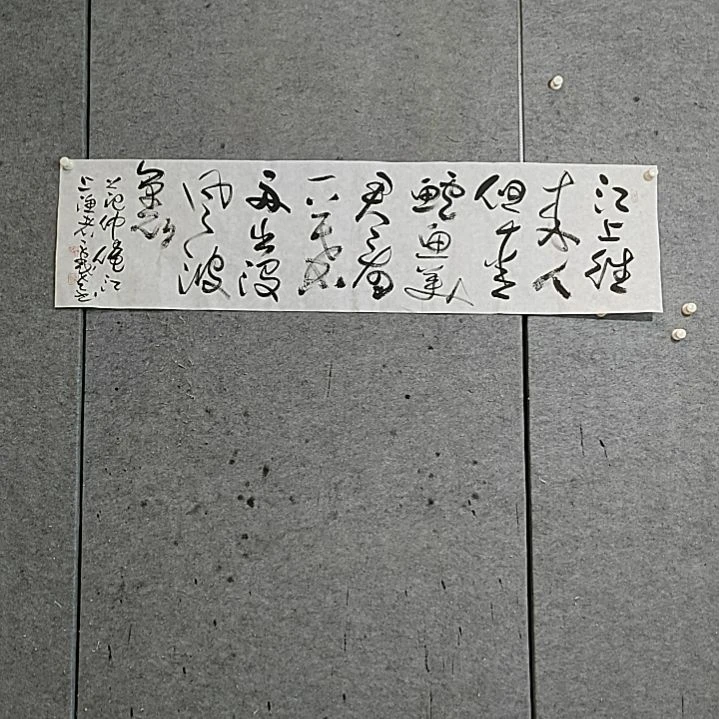 江上往
来人
但爱
鱸魚美
君看
一葉
舟出没
风波
裏
范仲淹江
上渔者